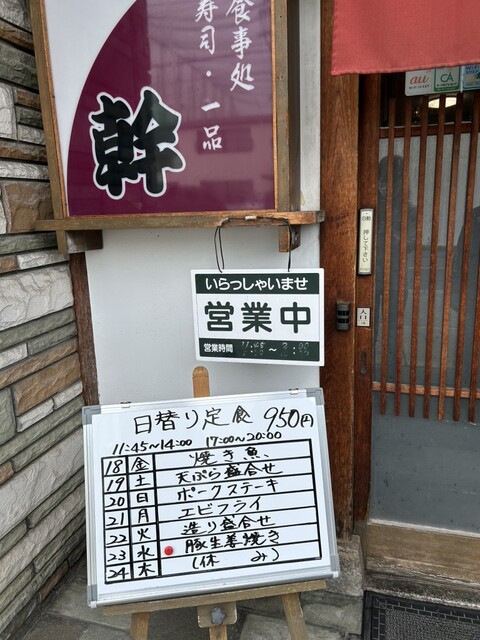 食事処
寿司・一品
幹
au
自動
押して下さい
入口
いらっしゃいませ
営業中
営業時間 11:45~
日替り定食 950円
11:45~14:00 17:00~20:00
18 金 焼き魚
19 土 天ぷら盛合せ
20 日 ポークステーキ
21 月 エビフライ
22 火 造り盛合せ
23 水 豚生姜焼き
24 木 (休み)